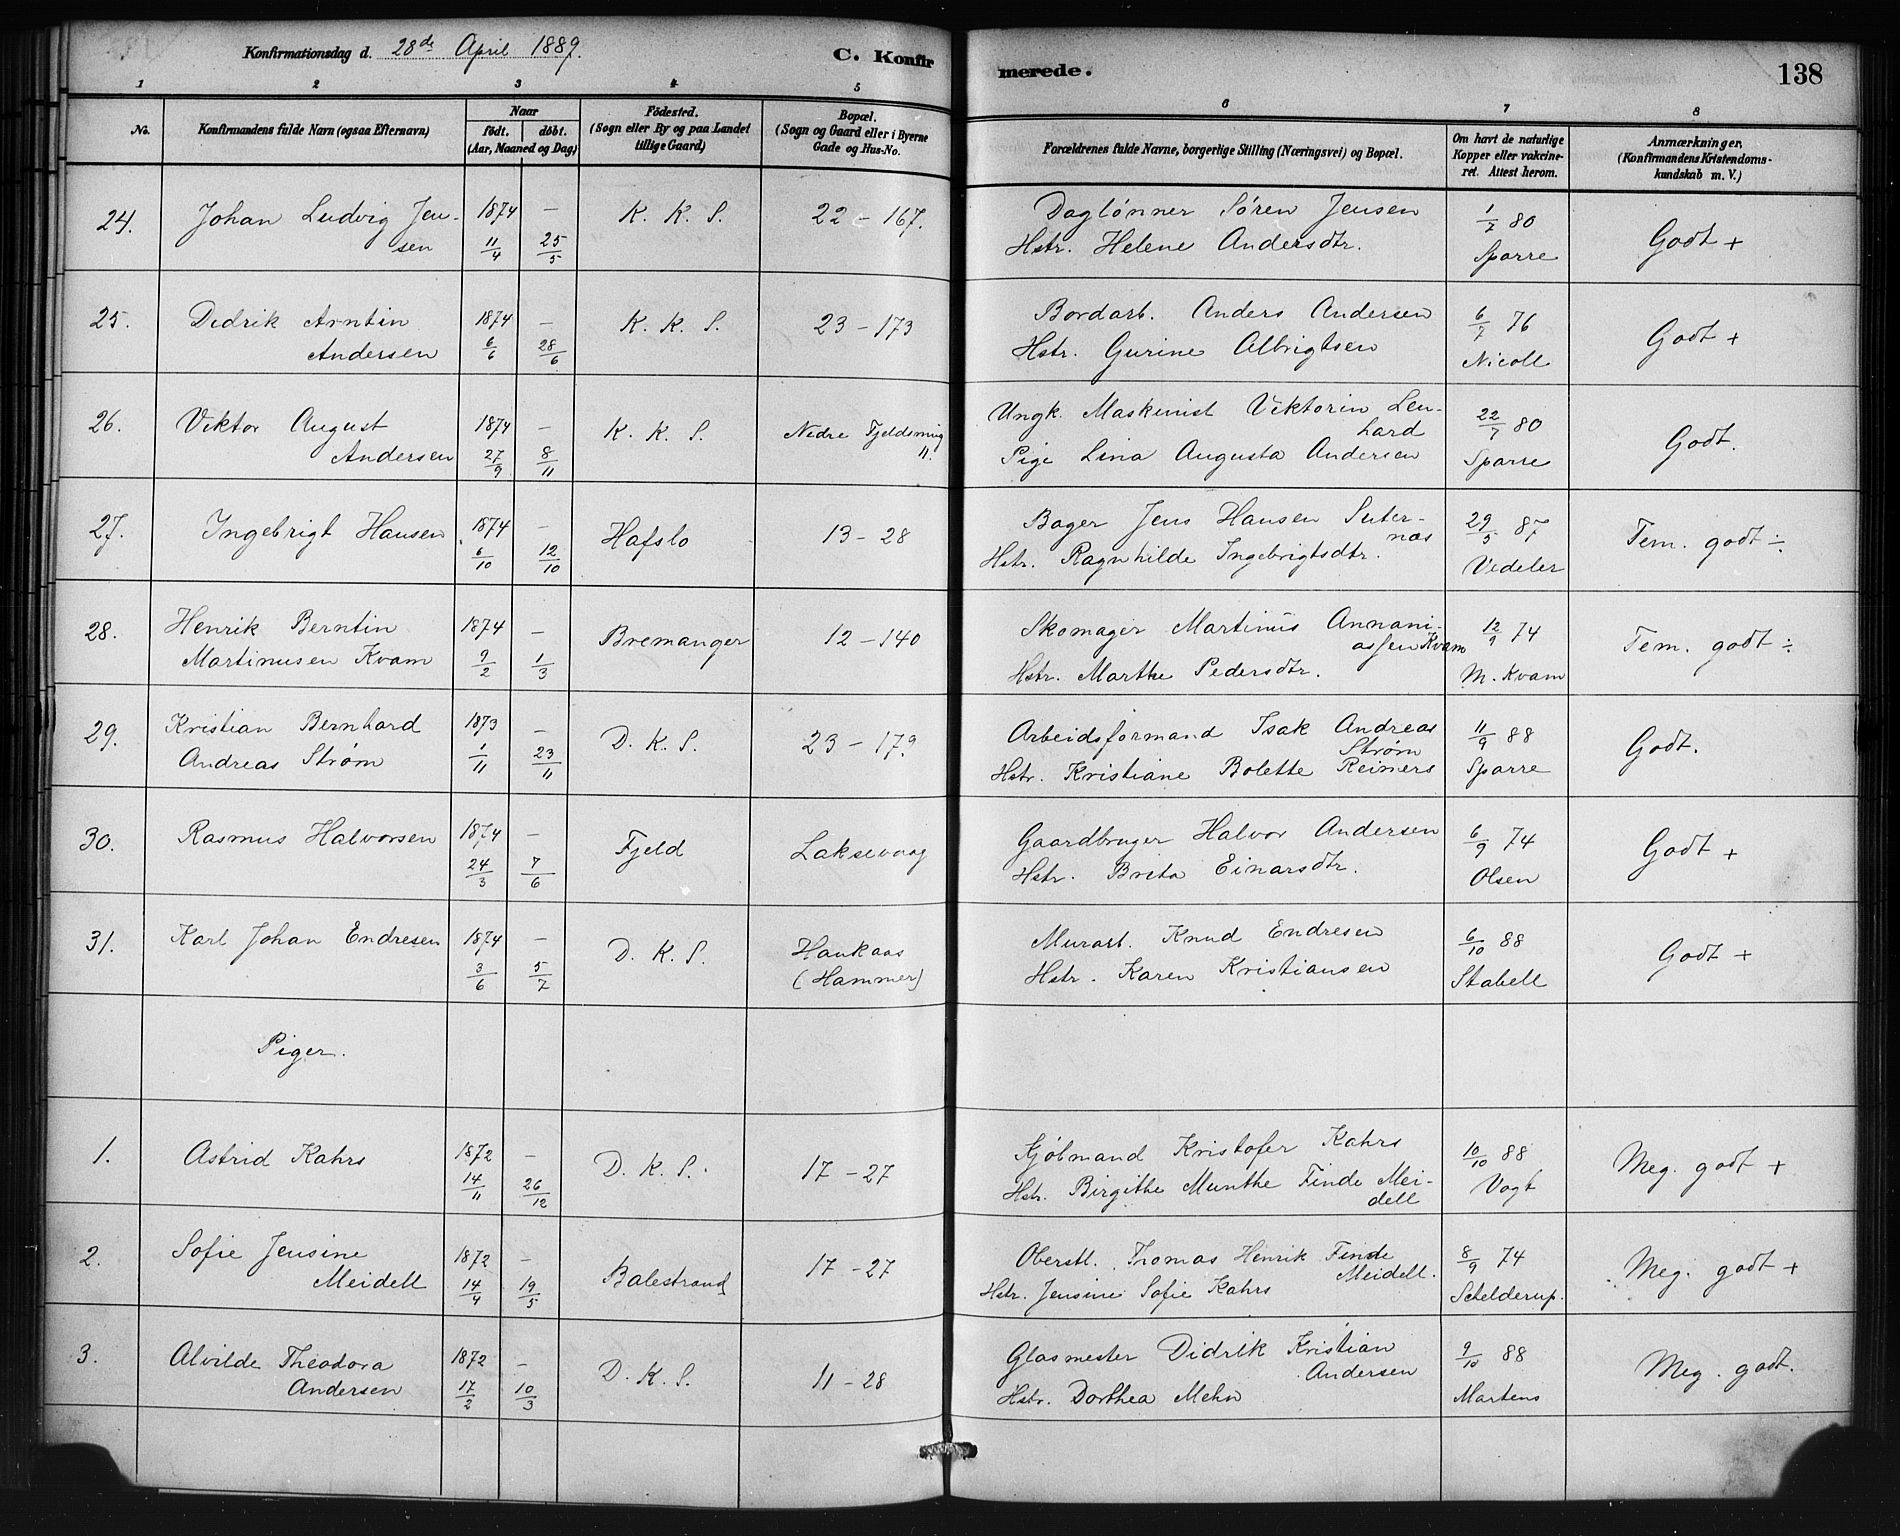 Konfirmationsdag d. 28de April 1889.
C. Konfirmerede.
138
1 2 3 4 5 6 7 8
No.
Konfirmandens fulde Navn (ogsaa Efternavn)
Naar
födt. döbt.
(Aar, Maaned og Dag)
Födested.
(Sogn eller By og paa Landet
tillige Gaard)
Bopæl.
(Sogn og Gaard eller i Byerne
Gade og Hus-No.
Forældrenes fulde Navne, borgerlige Stilling (Næringsvei) og Bopæl.
Om havt de naturlige
Kopper eller vakcine-
ret. Attest herom.
Anmærkninger.
(Konfirmandens Kristendoms-
kundskab m. V.)
24. Johan Ludvig Jen- 1874 – K. K. S. 22 – 167. Daglönner Sören Jensen 1/7 80 Godt +
sen 11/4 25/5 Hstr. Helene Andersdtr. Sparre
25. Didrik Arntin 1874 – K. K. S. 23 – 173 Bordarb. Anders Andersen 6/7 76 Godt +
Andersen 6/6 28/6 Hstr. Gurine Albrigtsen Nicoll
26. Viktor August 1874 – K. K. S. Nedre Fjeldsmug Ungk. Maskinist Viktorin Len- 22/7 80 Godt.
hard
Andersen 27/9 8/11 11. Pige Lina Augusta Andersen Sparre
27. Ingebrigt Hansen 1874 – Hafslo 13 – 28 Bager Jens Hansen Suter- 29/5 87 Tem. godt ÷
næs
6/10 12/10 Hstr. Ragnhilde Ingebrigtsdtr. Vedeler
28. Henrik Berntin 1874 – Bremanger 12 – 140 Skomager Martinus Annani- 12/9 74 Tem. godt ÷
assen Kvam
Martinusen Kvam 9/2 1/3 Hstr. Marthe Pedersdtr. M. Kvam
29. Kristian Bernhard 1873 – D. K. S. 23 – 179 Arbeidsformand Isak Andreas 11/9 88 Godt.
Strøm
Andreas Strøm 1/11 23/11 Hstr. Kristiane Bolette Reimers Sparre
30. Rasmus Halvorsen 1874 – Fjeld Laksevaag Gaardbruger Halvor Andersen 6/9 74 Godt +
24/3 7/6 Hstr. Brita Einarsdtr. Olsen
31. Karl Johan Endresen 1874 – D. K. S. Haukaas Murarb. Knud Endresen 6/10 88 Godt +
3/6 5/7 (Hammer) Hstr. Karen Kristiansen Stabell
Piger.
1. Astrid Kahrs 1872 – D. K. S. 17 – 27 Kjöbmand Kristofer Kahrs 10/10 88 Meg. godt +
14/11 26/12 Hstr. Birgithe Munthe Finde Mei- Vogt
dell
2. Sofie Jensine 1872 – Balestrand 17 – 27 Oberstl. Thomas Henrik Finde 8/9 74 Meg. godt +
Meidell.
Meidell 14/4 19/5 Hstr. Jensine Sofie Kahrs Schelderup.
3. Alvilde Theodora 1872 – D. K. S. 11 – 28 Glasmester Didrik Kristian 9/10 88 Meg. godt.
Andersen
Andersen 17/2 10/3 Hstr. Dorthea Mehn Martens